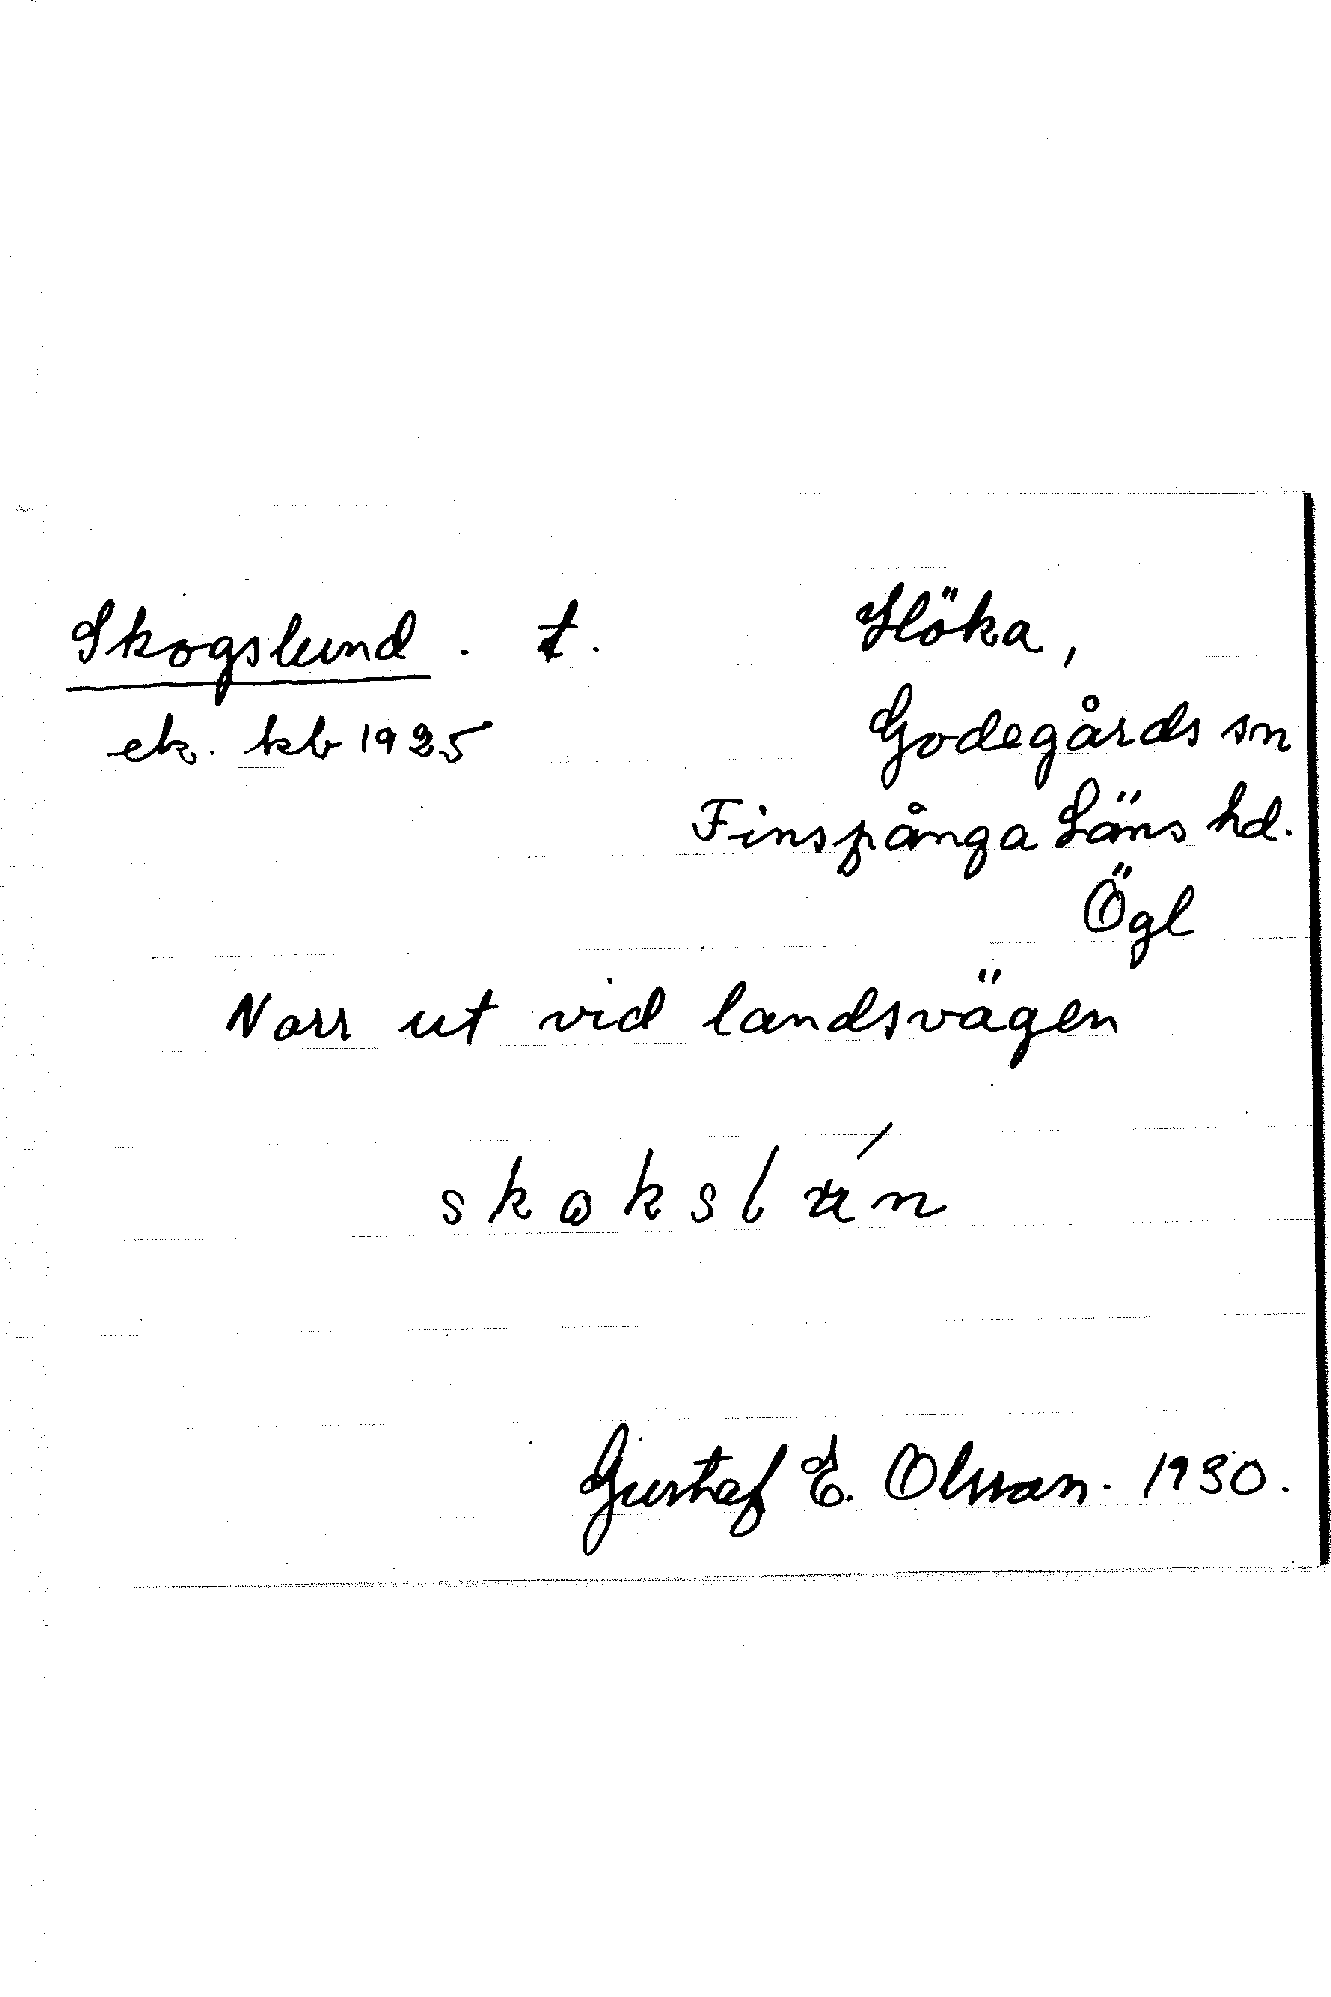 Skogslund. t. Höka,
ek. kb 1925 Godegårds sn
Finspånga Läns hd.
Ögl
Norr ut vid landsvägen
skoksl n
Gustaf E. Olsson. 1930.